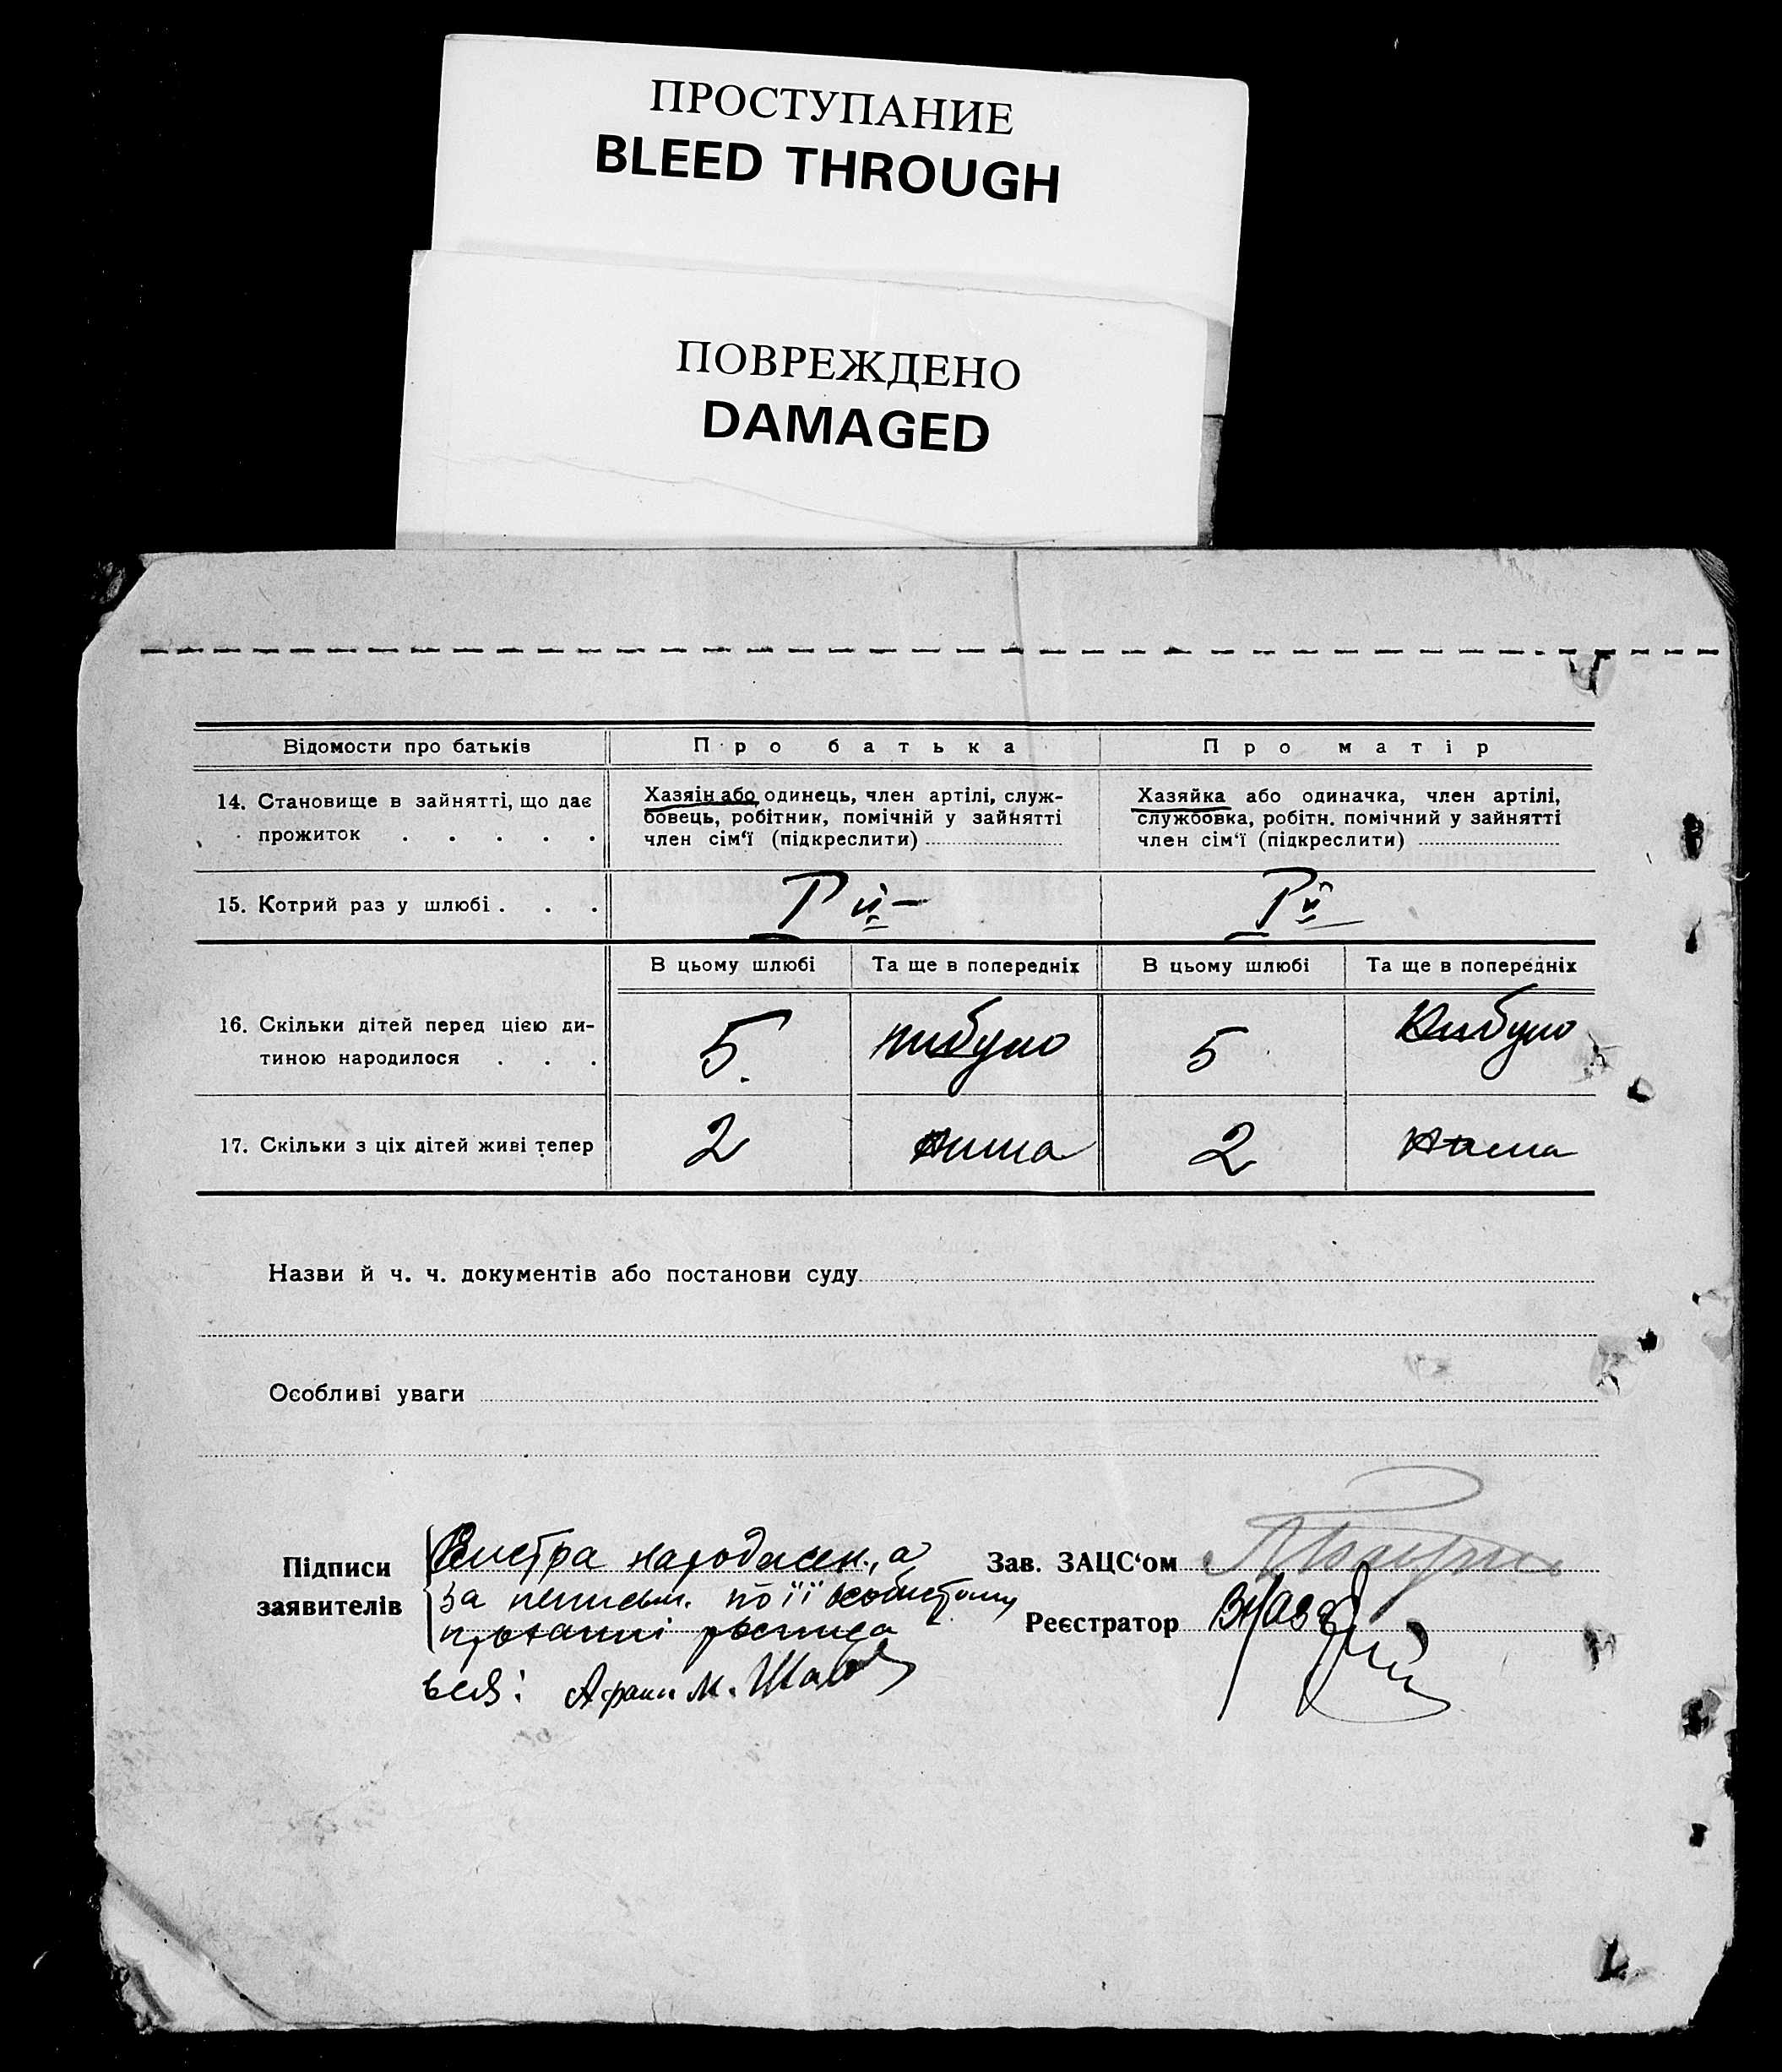 ПРОСТУПАНИЕ
BLEED THROUGH
ПОВРЕЖДЕНО
DAMAGED
Відомости про батьків
Про батька
Про матір
14. Становище в зайнятті, що дає
прожиток . . . . .
Хазяін або одинець, член артілі, служ-
бовець, робітник, помічній у зайнятті
член сім'ї (підкреслити)
Хазяйка або одиначка, член артілі,
службовка, робітн. помічний у зайнятті
член сім'ї (підкреслити)
15. Котрий раз у шлюбі . . .
Iй
Iй
В цьому шлюбі
Та ще в попередніх
В цьому шлюбі
Та ще в попередніх
16. Скільки дітей перед цією ди-
тиною народилося . . .
5.
нибуло
5
нибуло
17. Скільки з ціх дітей живі тепер
2
нима
2
нима
Назви й ч. ч. документів або постанови суду
Особливі уваги
Підписи
заявителів
народжен., а
за по її особистому
вся: М.
Зав. ЗАЦС'ом
Реєстратор